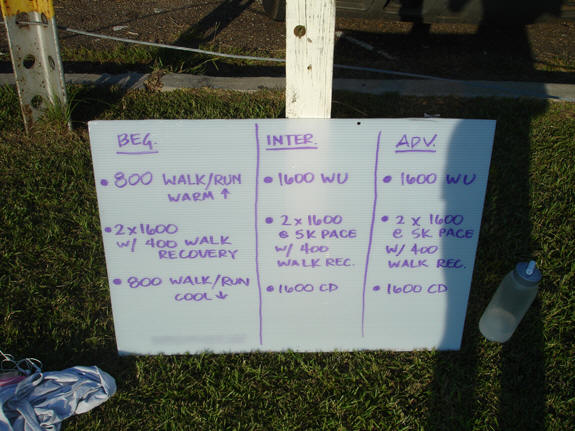 BEG.
• 800 WALK/RUN
WARM ↑
• 2x1600
W/ 400 WALK
RECOVERY
• 800 WALK/RUN
COOL ↓
INTER.
• 1600 WU
• 2 x 1600
@ 5K PACE
W/ 400
WALK REC.
• 1600 CD
ADV.
• 1600 WU
• 2 x 1600
@ 5K PACE
W/ 400
WALK REC.
• 1600 CD